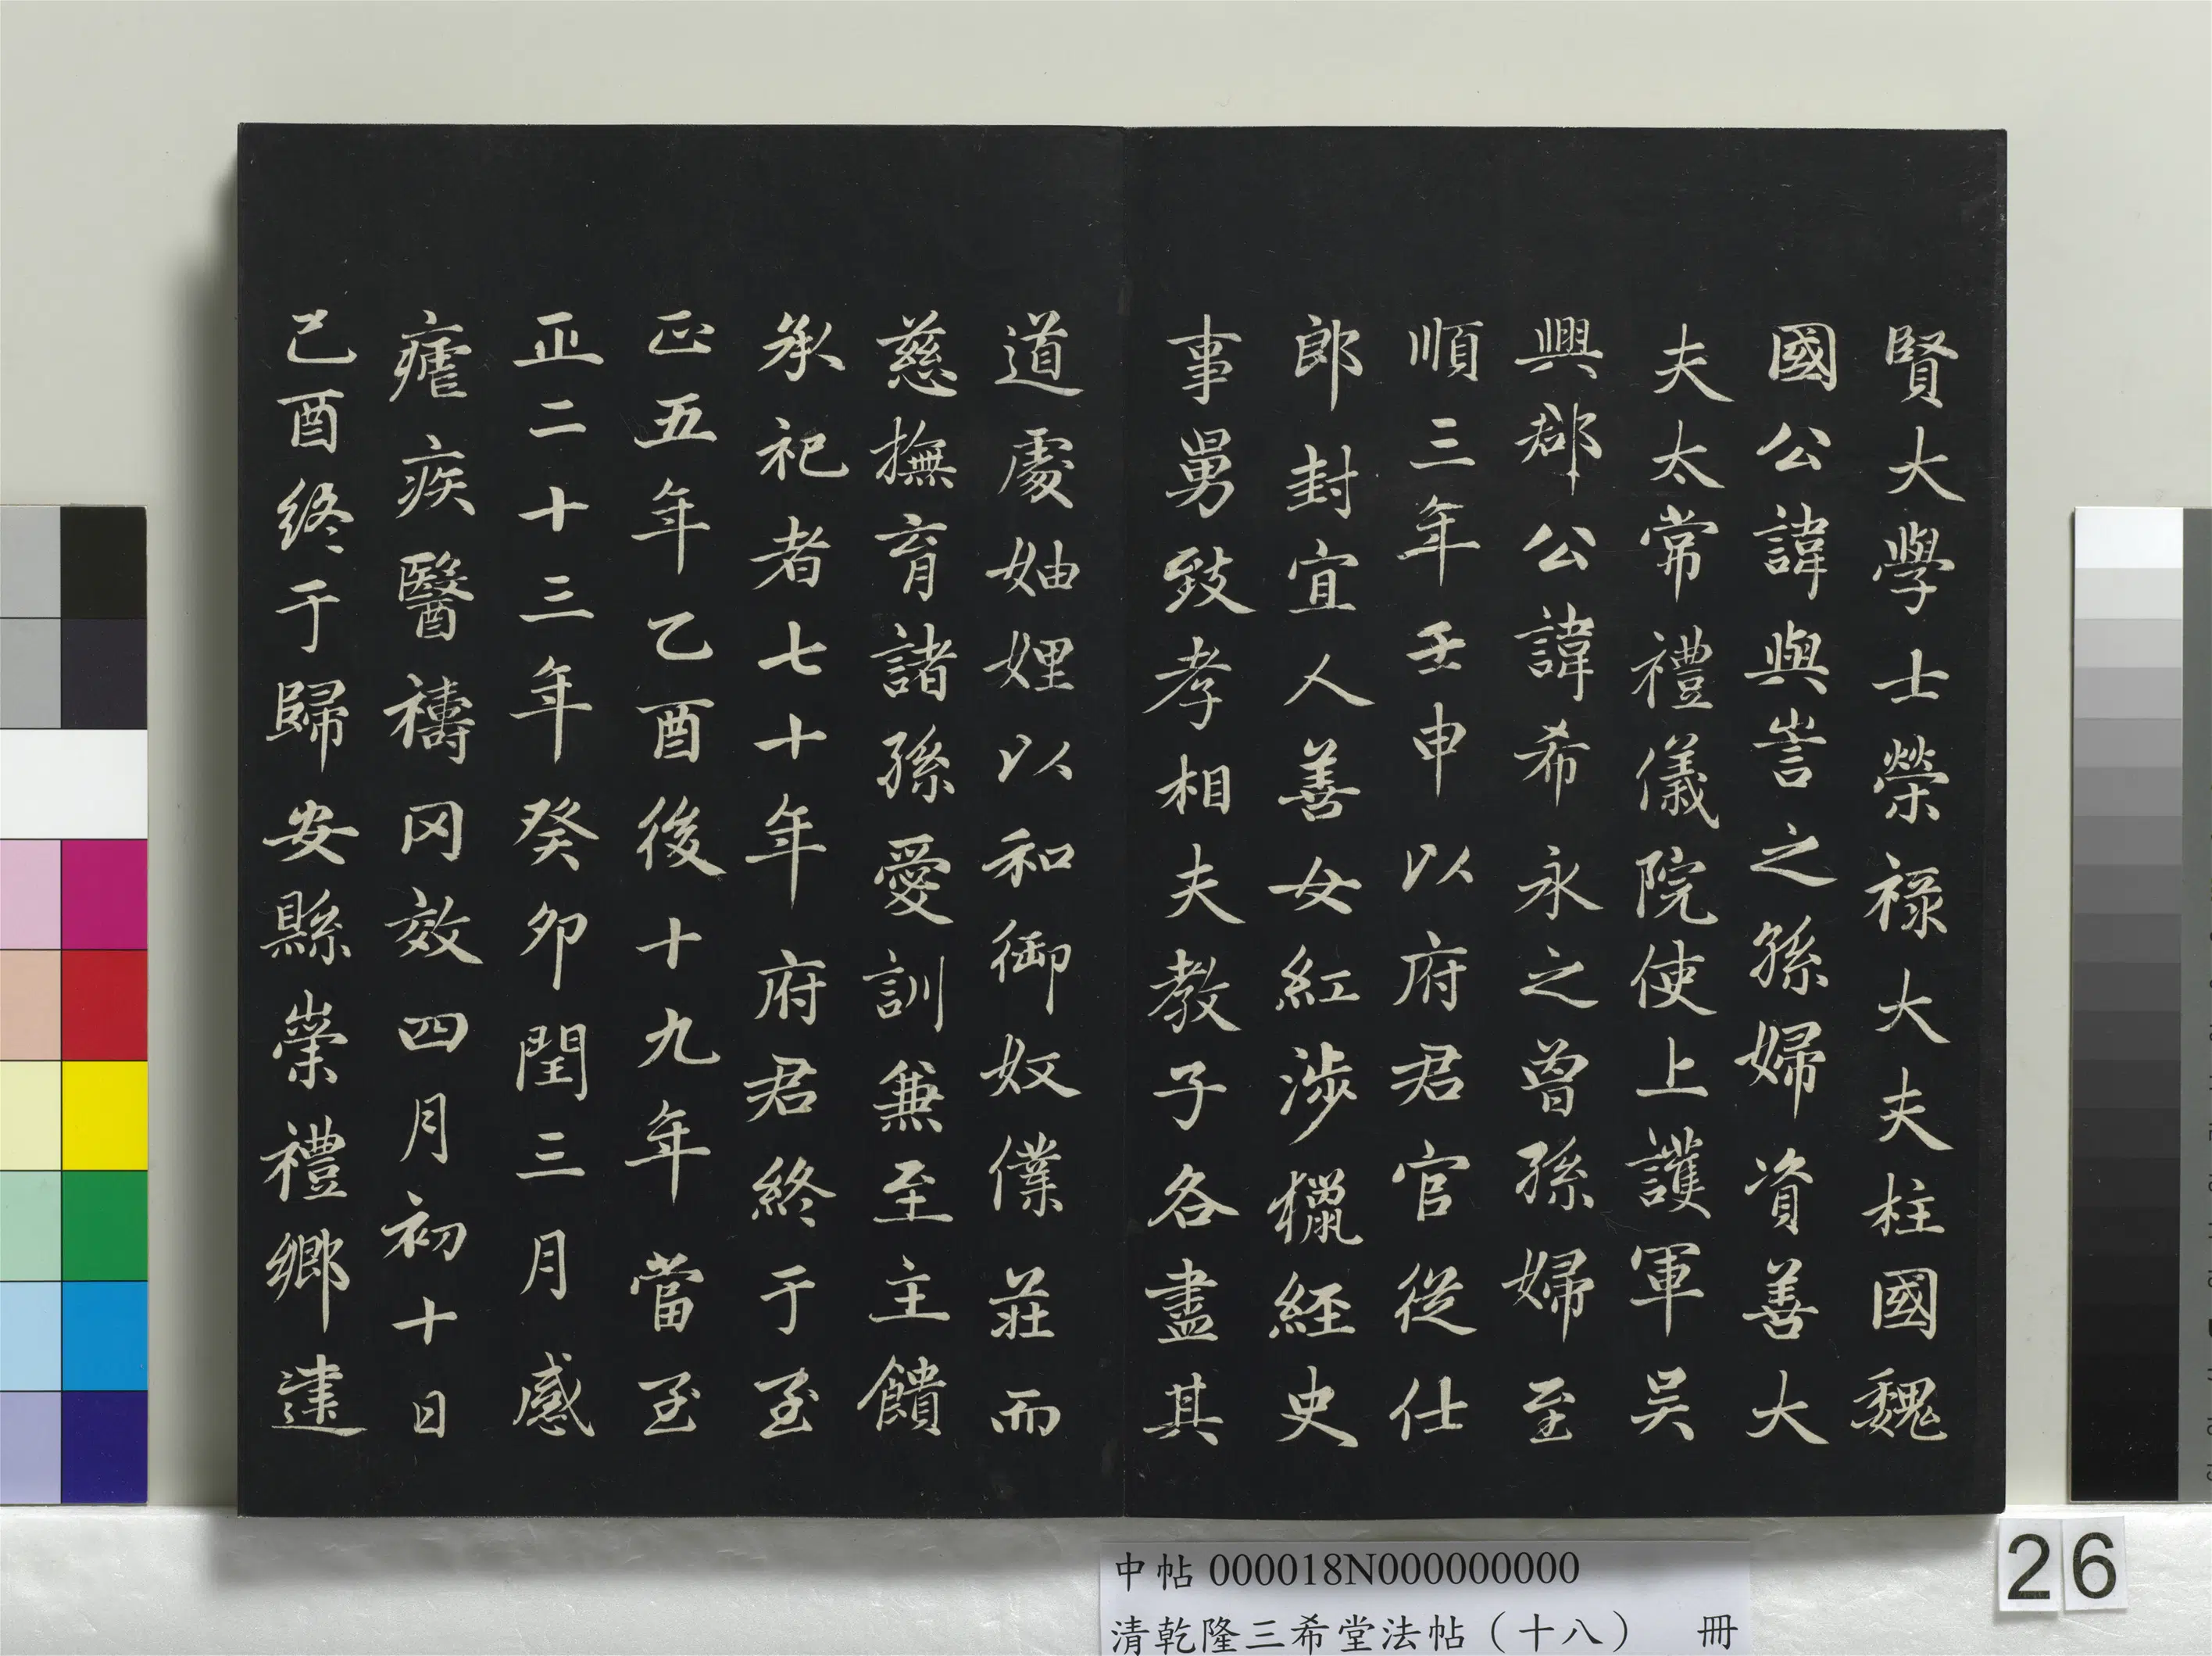 賢大學士榮祿大夫柱國魏
國公諱與訔之孫婦資善大
夫太常禮儀院使上護軍吴
興郡公諱希永之曾孫婦至
順三年壬申以府君官從仕
郎封宜人善女紅涉獵經史
事舅致孝相夫教子各盡其
道處妯娌以和御奴僕莊而
慈撫育諸孫愛訓兼至主饋
承祀者七十年府君終于至
正五年乙酉後十九年當至
正二十三年癸卯閏三月感
瘧疾醫禱罔效四月初十日
己酉終于歸安縣崇禮鄉建
中帖 000018N000000000
清乾隆三希堂法帖（十八） 冊
26